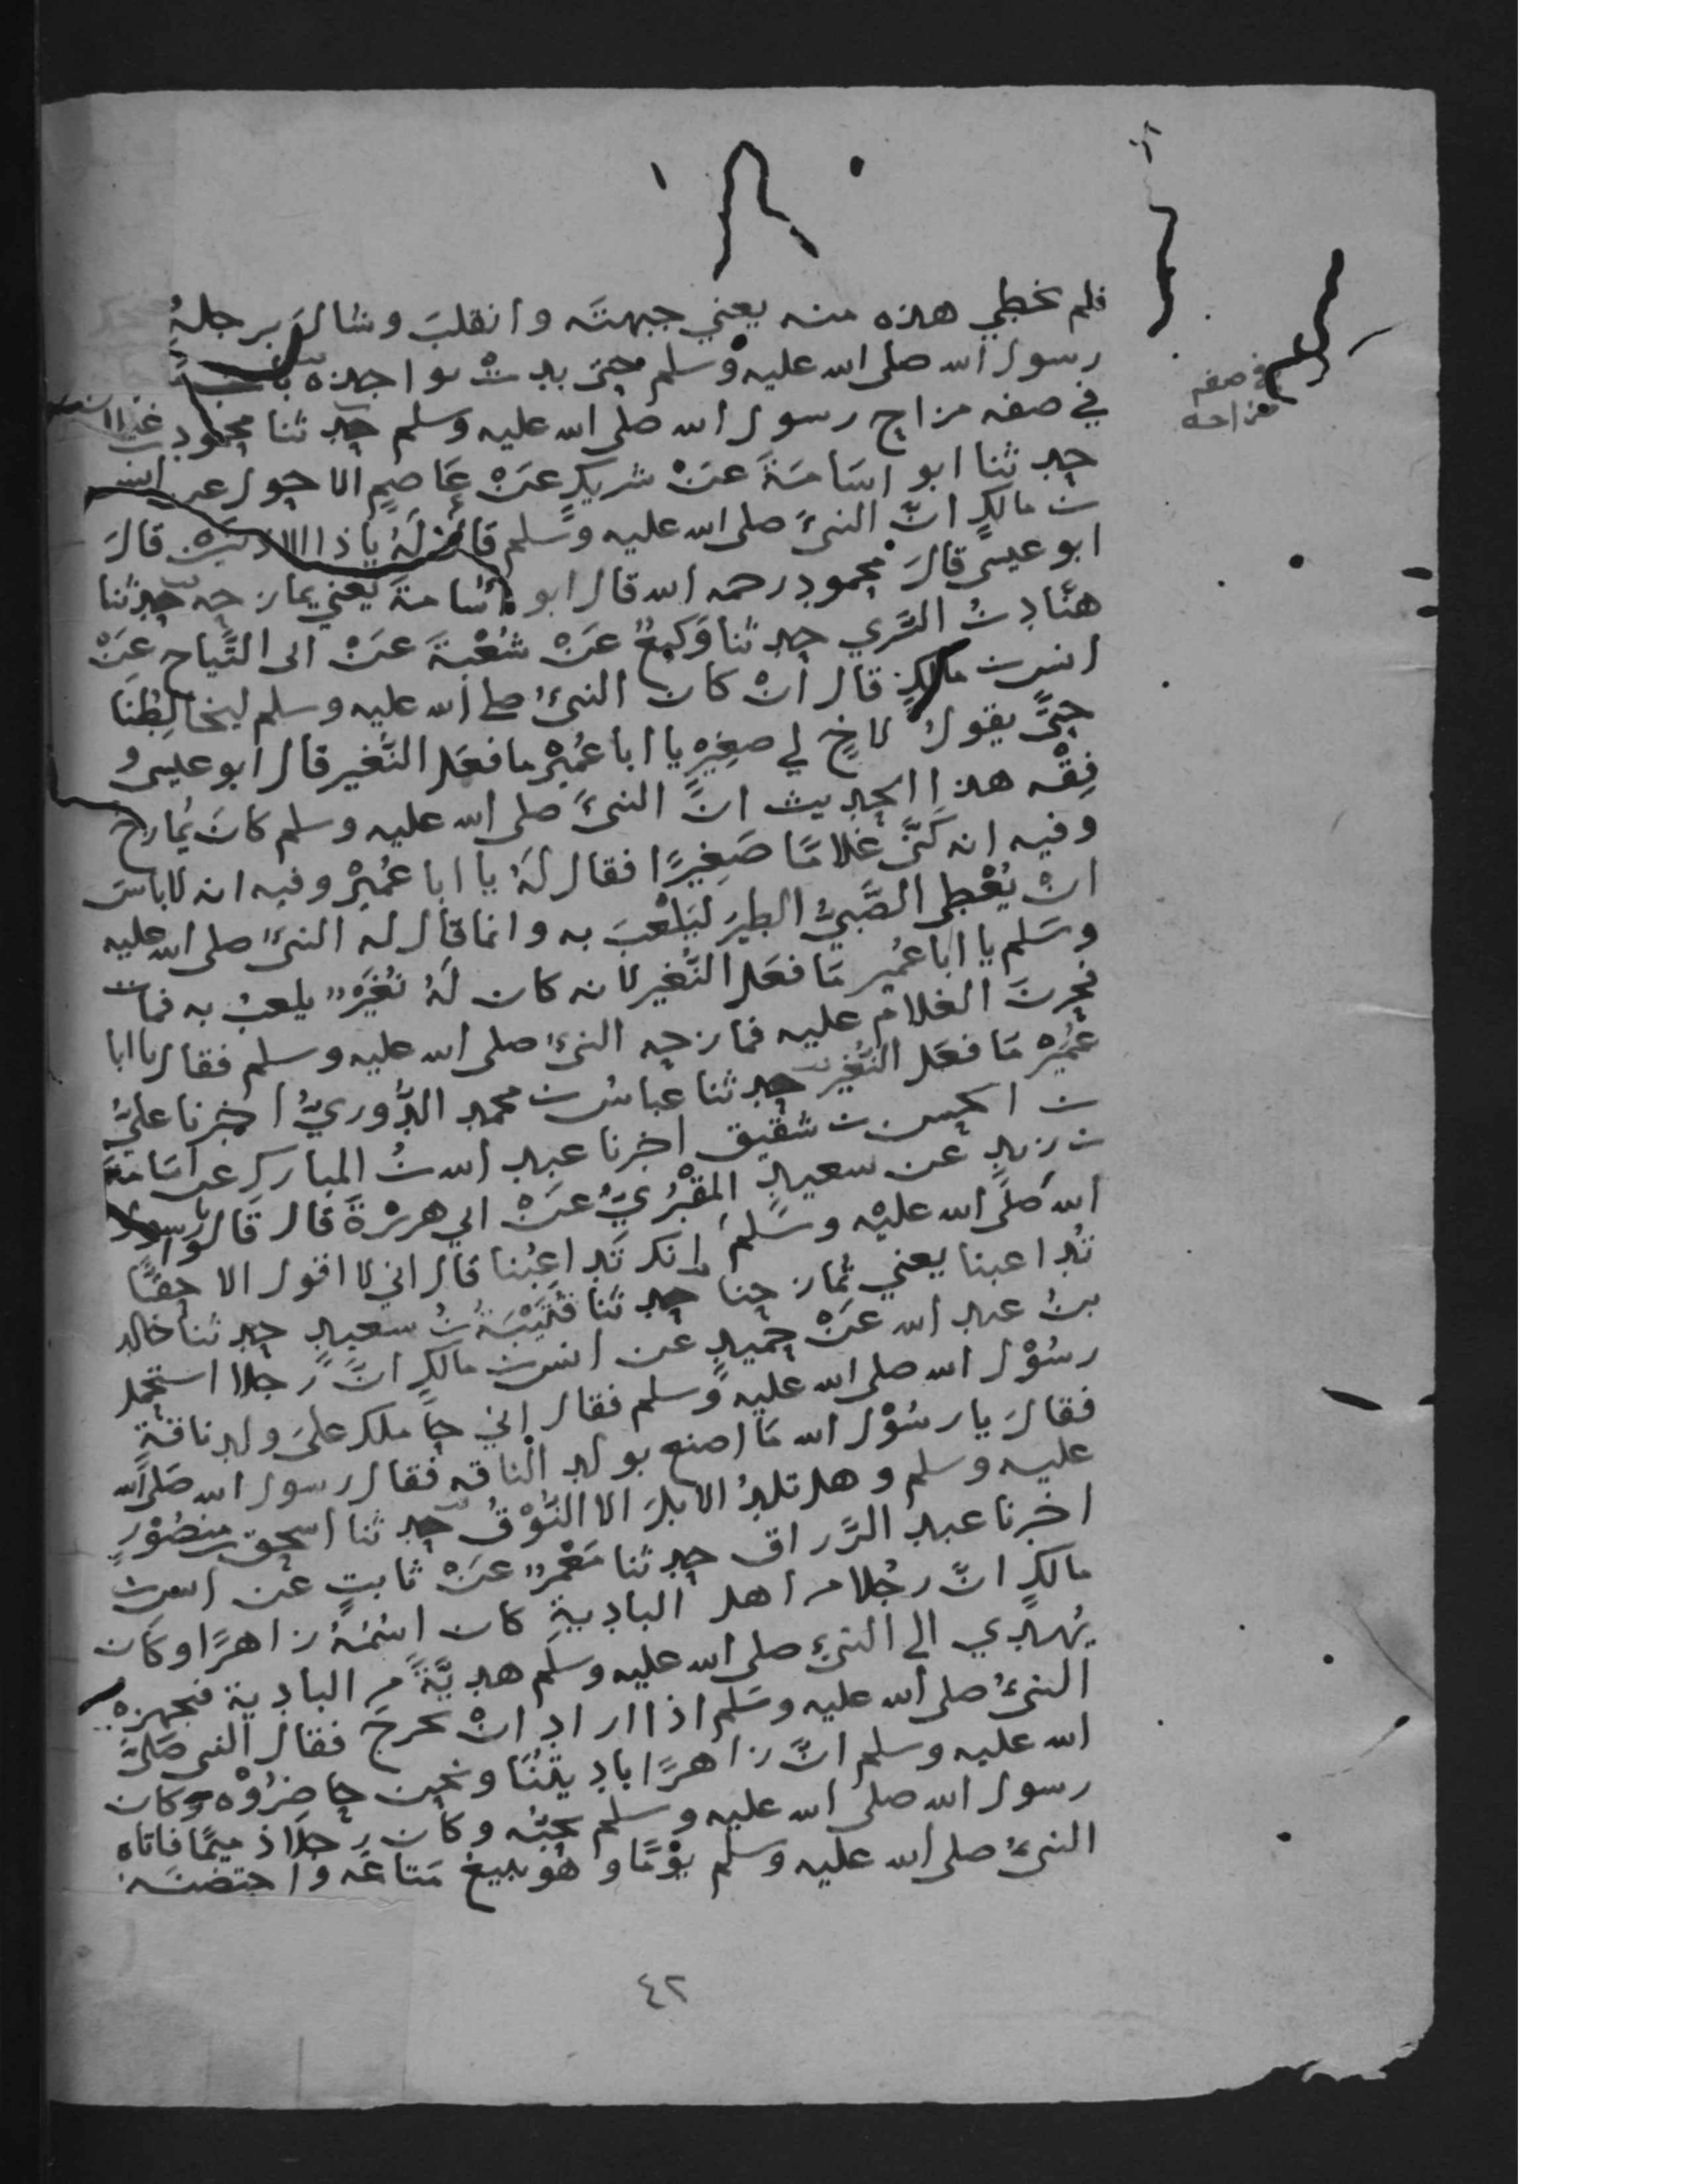 فلم تخطي هذه منه يعني جبهتَه وانقلبَ وشالَ برجلهُ
رسول الله صلى الله عليه وسلم حتى بدتْ نواجذه باب
في صفه مزاح رسول الله صلى الله عليه وسلم حدثنا محمود بن غيلان
حدثنا ابو اسَامَةَ عَنْ شريكٍ عَنْ عَاصِمٍ الاحول عن انس
بن مالكٍ انّ النبيَّ صلى الله عليه وسلم قال لَهُ يا ذا الاذنين قال
ابو عيسى قال محمود رحمه الله قال ابو اُسَامةَ يعني يمازحه حدثنا
هنَّاد بنُ السَّري حدثنا وَكيعٌ عَنْ شُعْبَةَ عَنْ ابي التَّياح عَنْ
انس بن مالكٍ قال انْ كان النبيُّ صلى الله عليه وسلم ليخالِطُنَا
حتَّى يقول لاخٍ لي صغِيرٍ يا ابا عُمَيْرْ ما فعَل النُّغير قال ابو عيسى و
فِقْه هذا الحديث انَّ النبيَّ صلى الله عليه وسلم كانَ يُمازح
وفيه انه كَنَّى غلامًا صَغِيرًا فقال لَهُ يا ابا عُمَيْرْ وفيه انه لاباسَ
انْ يُعْطى الصَّبيُّ الطيرَ ليَلْعَبَ به وانما قال له النبيُّ صلى الله عليه
وسَلم يا ابا عُمير مَا فعَل النُّغير لانه كان لَهُ نُغَيْرٌ يلعبُ به فمات
فحزنَ الغلامُ عليه فمازحه النبيُّ صلى الله عليه وسلم فقال يا ابا
عُمَيْرْ مَا فعَل النُّغَير حدثنا عباسُ بن محمد الدُّوريُّ اخبرنا عليُّ
بن الحسن بن شقيق اخبرنا عبد الله بنُ المبارك عن اسَامَةَ
بن زيدٍ عن سعيدٍ المقْبُريِّ عَنْ ابي هريْرَةَ قال قالُوا يا رسول
الله صلى الله عليْه وسَلم انك تُدَاعِبُنا قال اني لا اقول الا حقًّا
تُداعبنا يعني تُمازحنا حدثنا قُتَيْبَةُ بنُ سعيدٍ حدثنا خالد
بنُ عبد الله عَنْ حميدٍ عن انس بن مالكٍ انَّ رَجلا استحمل
رسُوْل الله صلى الله عليه وسلم فقال اني حاملك على ولد ناقةٍ
فقالَ يا رسُوْل الله مَا اصنع بولد الناقه فقال رسول الله صَلى الله
عليه وسلم وهل تلدُ الابلَ الا النُّوْقُ حدثنا اسحق بن منصُوْرٍ
اخبرنا عبد الرَّزاق حدثنا مَعْمَرٌ عَنْ ثابتٍ عن انس بن
مالكٍ انَّ رجُلا من اهل الباديةِ كان اسْمُهُ زاهرًا وكان
يُهدي الى النبيِّ صلى الله عليه وسلم هديَّةً من البادية فيجهزه
النبيُّ صلى الله عليه وسَلم اذا اراد انْ يخرجَ فقال النبي صَلىَّ
الله عليه وسلم انَّ زاهرًا باديتُنَا ونحن حاضرُوْهُ وكان
رسول الله صلى الله عليه وسلم يحبُّه وكان رجلا ذميمًا فاتاه
النبيُّ صلى الله عليه وسلم يوْمًا وهو يبيعُ مَتاعَه واحتضنه
في صفه
مزاحه
٤٢